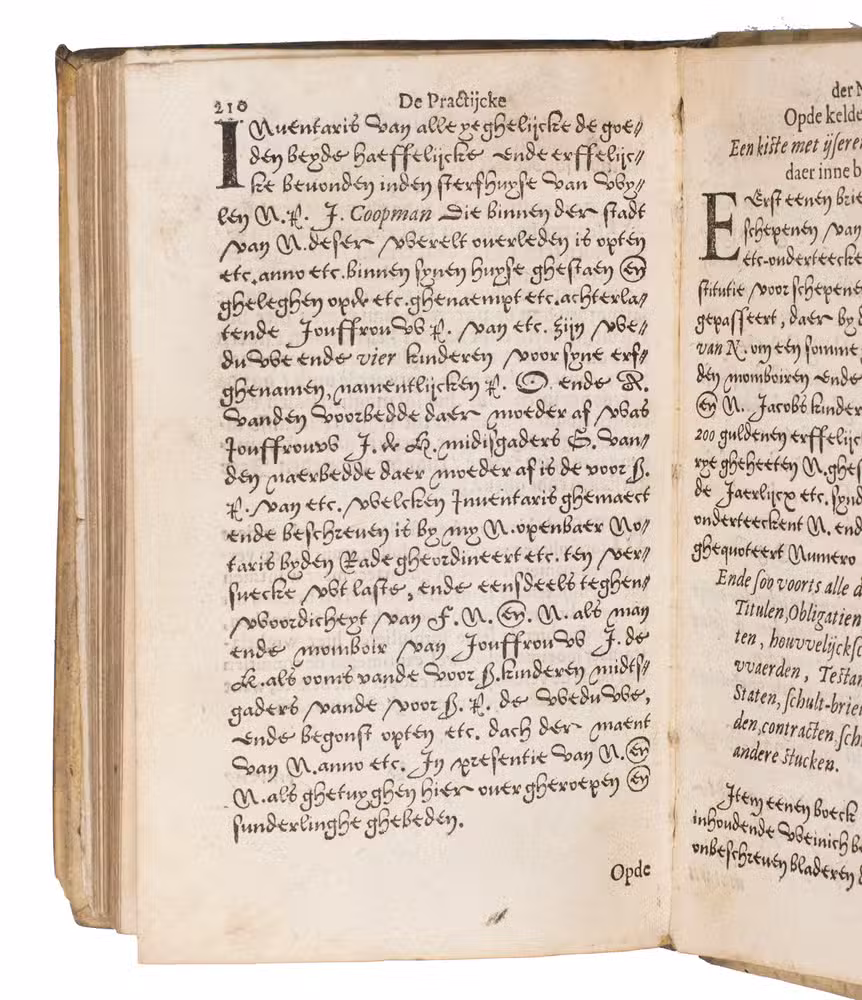 210 De Practijcke
INuentaris van alle yeghelijcke de goe-
den beyde haeffelijcke ende erffelijc-
ke beuonden inden sterfhuyse van vvy-
len N. R. J. Coopman Die binnen der stadt
van N. deser vverelt ouerleden is opten
etc. anno etc. binnen synen huyse ghestaen en
gheleghen opde etc. ghenaempt etc. achterla-
tende Jouffrouvvs R. van etc. zijn vve-
duvve ende vier kinderen voor syne erf-
ghenamen, namentlijcken R. O. ende R.
vanden voorbedde daer moeder af vvas
Jouffrouvvs J. de H. midtsgaders S. van-
den naerbedde daer moeder af is de voor S.
R. van etc. vvelcken Inuentaris ghemaect
ende beschreuen is by my N. openbaer No-
taris byden Rade gheordineert etc. ten ver-
suecke vvt laste, ende eensdeels teghen-
vvoordicheyt van F. N. en. N. als man
ende momboir van Jouffrouvvs J. de
H. als ooms vande voor S. kinderen midts-
gaders vande voor S. R. de vveduvve,
ende begonst opten etc. dach der maent
van N. anno etc. In presentie van N. en
N. als ghetuyghen hier ouer gheroepen en
sunderlinghe ghebeden.
Opde
der
Opde
Een kiste met
daer inne
EErst eenen
schepenen van
etc. onderteecke
stitutie voor schepene
gepasseert, daer by
van N. om een somme
den momboiren ende
en N. Jacobs kinder
200 guldenen erffelijc
rye gheheeten N. ghes
de Jaerlijcx etc. synd
onderteeckent N. end
ghequoteert Numero
Ende soo voorts alle
Titulen, Obligatien
ten, houvvelijcksc
vvaerden, Testa
Staten, schult-brie
den, contracten, sch
andere stucken.
Item eenen boeck
inhoudende vveinich
onbeschreuen bladeren